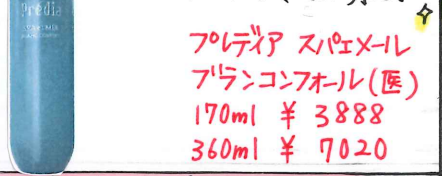 Prédia
プレディア スパエメール
ブランコンフォール(医)
170ml ¥ 3888
360ml ¥ 7020